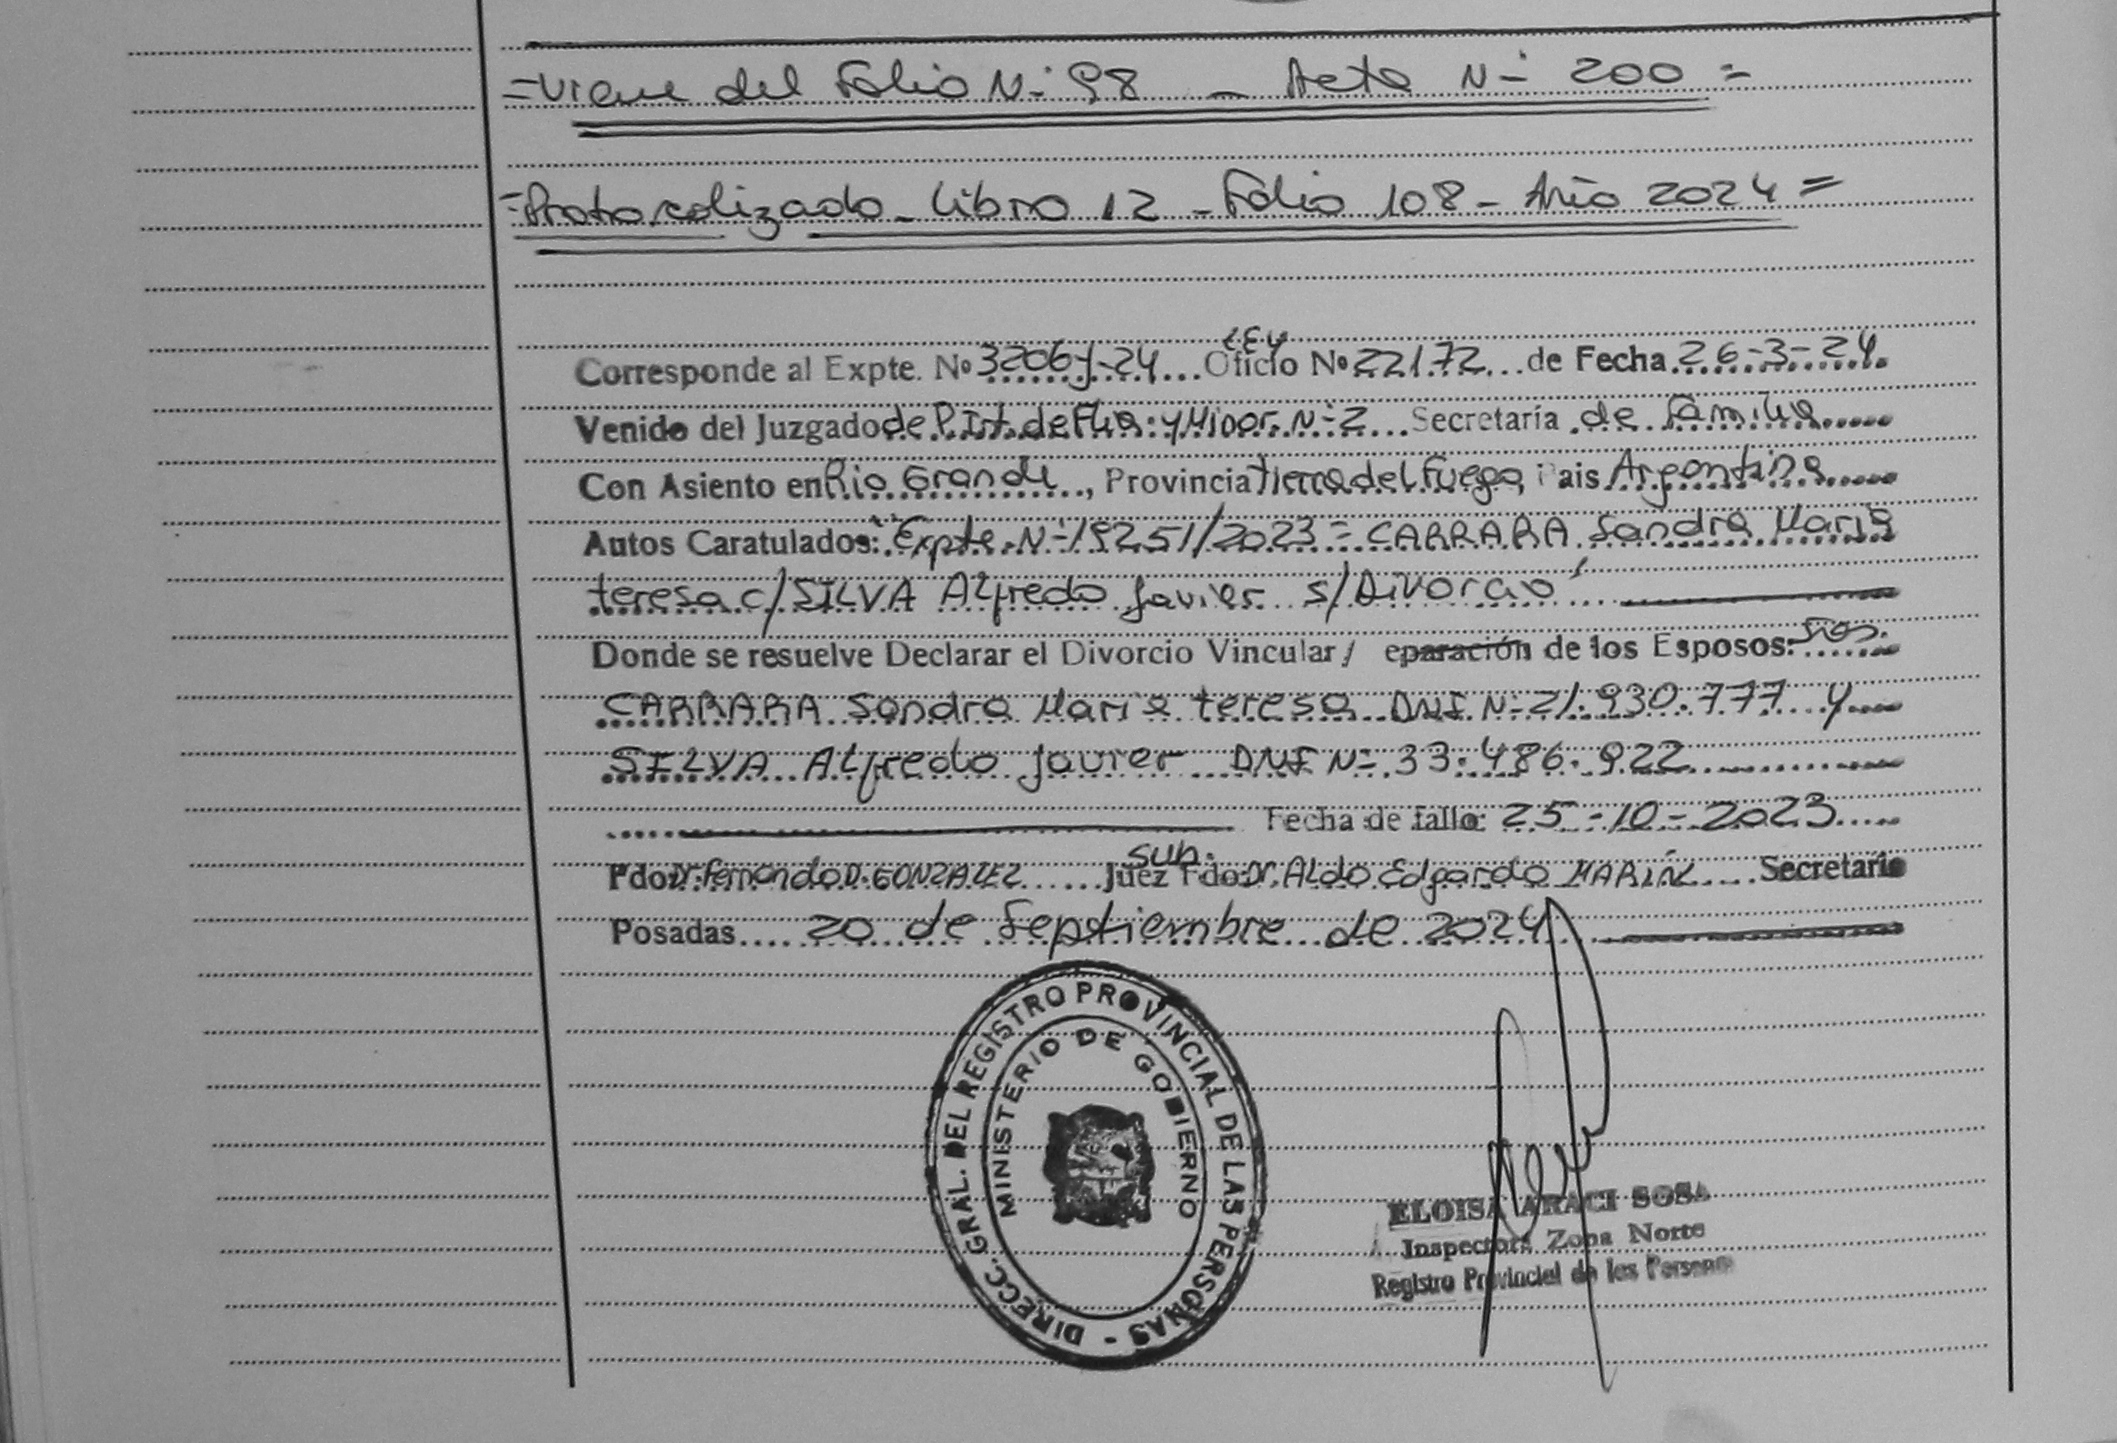 =Viene del Folio N- 98 - Acta N- 200=
=Protocolizado - Libro 12 - Folio 108 - Año 2024=
LEY
Corresponde al Expte. Nº 3206-J-24 Oficio Nº 22172 de Fecha 26-3-24.
Venido del Juzgado de P.Ist. de Flia. y Minor. N-2 Secretaría de Familia
Con Asiento en Rio Grande, Provincia Tierra del Fuego, Pais Argentina
Autos Caratulados: "Expte. N-19251/2023 = CARRARA Sandra Maria
teresa c/SILVA Alfredo Javier s/Divorcio"
Donde se resuelve Declarar el Divorcio Vincular/ eparación de los Esposos: Sres.
CARRARA Sandra Maria teresa DNI N- 21.930.777 y
SILVA Alfredo Javier DNI N- 33.486.922
Fecha de fallo: 25-10-2023
Sub.
Fdo: Dr. Fernando D. GONZALEZ Juez Fdo: Dr. Aldo Edgardo MARÍN Secretario
Posadas 20 de Septiembre de 2024
DIRECC. GRAL. DEL REGISTRO PROVINCIAL DE LAS PERSONAS -
MINISTERIO DE GOBIERNO
ELOISA ARACI SOSA
Inspectora Zona Norte
Registro Provincial de las Personas